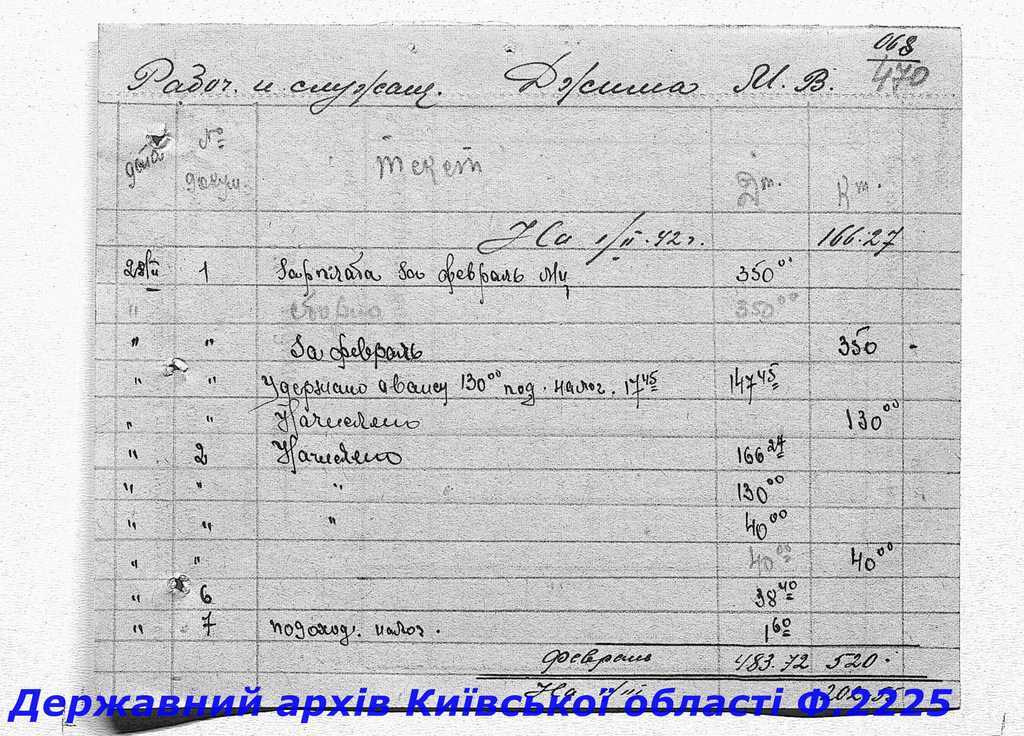 068
470
Рабоч. и служащ. Джима М. В.
дата № докум. текст Дт. Кт.
На 1/II.42г. 166.27
28/II 1 Зарплата за февраль м/ц 350⁰⁰
" сторно 350⁰⁰
" " За февраль 350
" " Удержано авансу 130⁰⁰ под. налог. 17⁴⁵ 147⁴⁵
" " Начислено 130⁰⁰
" 2 Начислено 166²⁷
" " " 130⁰⁰
" " " 40⁰⁰
" " 40⁰⁰ 40⁰⁰
" 6 38⁴⁰
" 7 подоход. налог. 1⁶⁰
февраль 483.72 520.
На 1/III
Державний архів Київської області Ф.2225